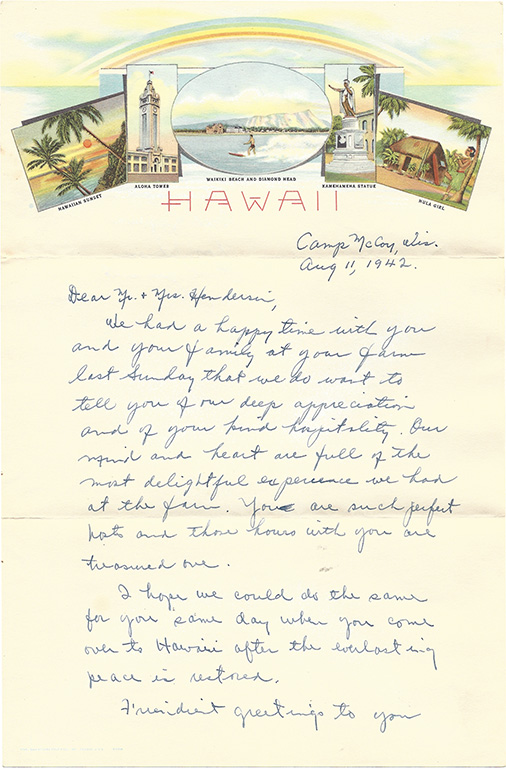 HAWAIIAN SUNSET
ALOHA TOWER
WAIKIKI BEACH AND DIAMOND HEAD
KAMEHAMEHA STATUE
HULA GIRL
HAWAII
Camp McCoy, Wis.
Aug 11, 1942.
Dear Mr. + Mrs. Henderson,
We had a happy time with you
and your family at your farm
last Sunday that we do want to
tell you of our deep appreciation
and of your kind hospitality. Our
mind and heart are full of the
most delightful experience we had
at the farm. You are such perfect
hosts and those hours with you are
treasured one.
I hope we could do the same
for you same day when you come
over to Hawaii after the everlasting
peace is restored.
Friendliest greetings to you